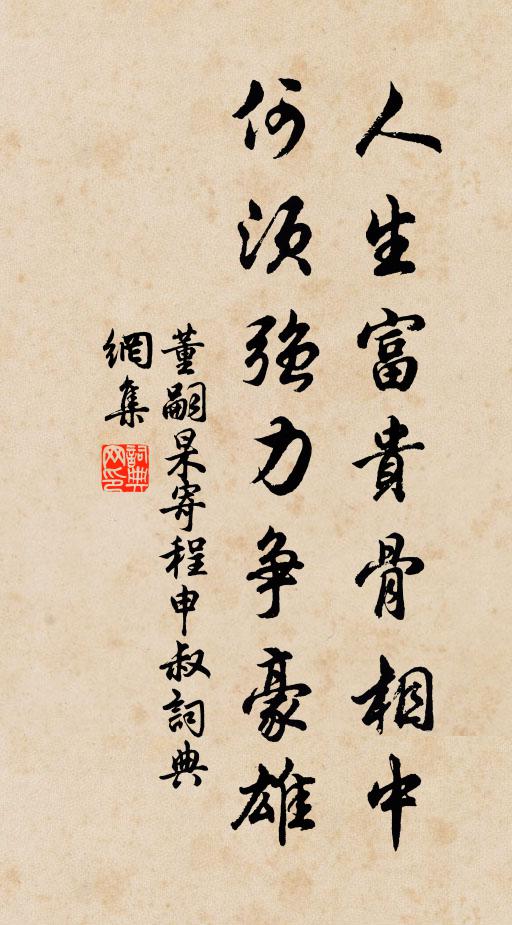 人生富貴骨相中
何須強力爭豪雄
董嗣杲寄程申叔詞典
網集
詞典網印